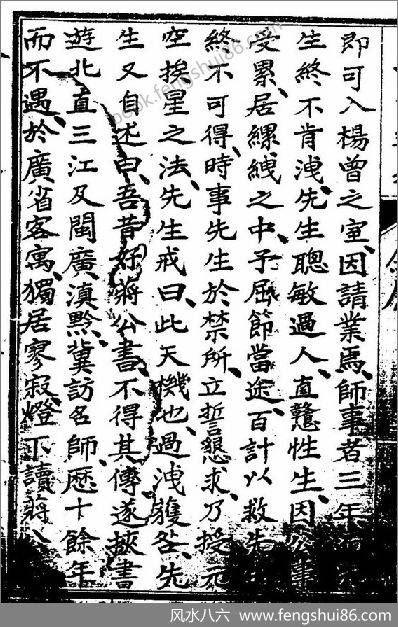 即可入楊曾之室因請業焉師事者三年
生終不肯洩先生聰敏過人直戇性生因公事
受累居縲絏之中予屈節當途百計以救先
終不可得時事先生於禁所立誓懇求乃授元
空挨星之法先生戒曰此天機也過洩獲咎先
生又自述曰吾昔好蔣公書不得其傳遂挾書
遊北直三江及閩廣滇黔冀訪名師歷十餘年
而不遇於廣省客寓獨居寥寂燈下讀蔣
风水八六 www.fengshui86.com